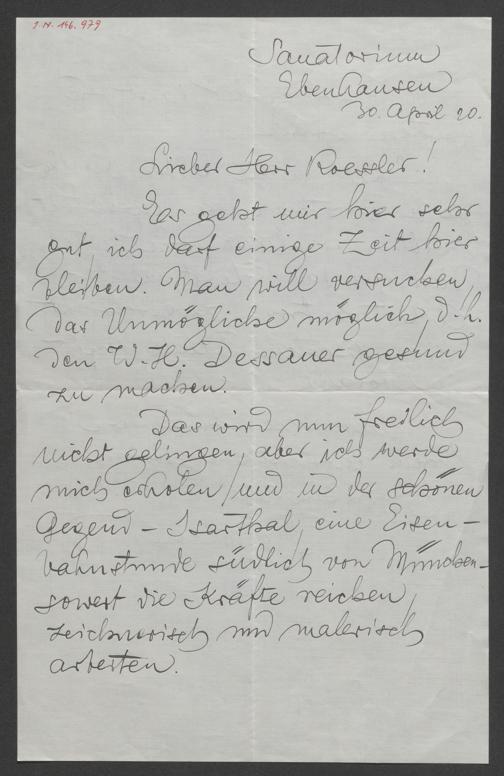 I.N. 196.979
Sanatorium
Ebenhausen
30. April 20.
Lieber Herr Roessler!
Es geht mir hier sehr
gut, ich darf einige Zeit hier
bleiben. Man will versuchen,
das Unmögliche möglich, d.h.
den W.H. Dessauer gesund
zu machen.
Das wird nun freilich
nicht gelingen, aber ich werde
mich erholen und in der schönen
Gegend – Isarthal, eine Eisen-
bahnstunde südlich von München –
soweit die Kräfte reichen,
zeichnerisch und malerisch
arbeiten.